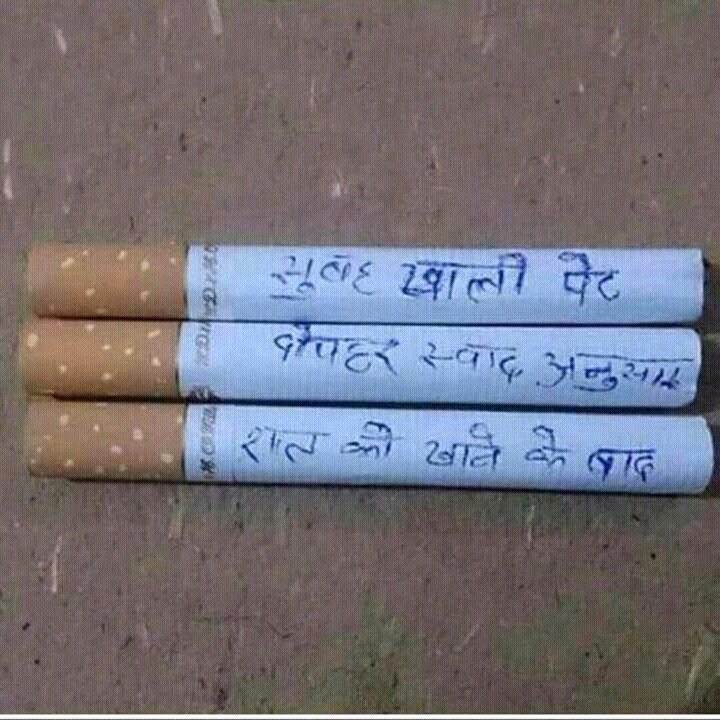 सुबह खाली पेट
दोपहर स्वाद अनुसार
रात को खाने के बाद